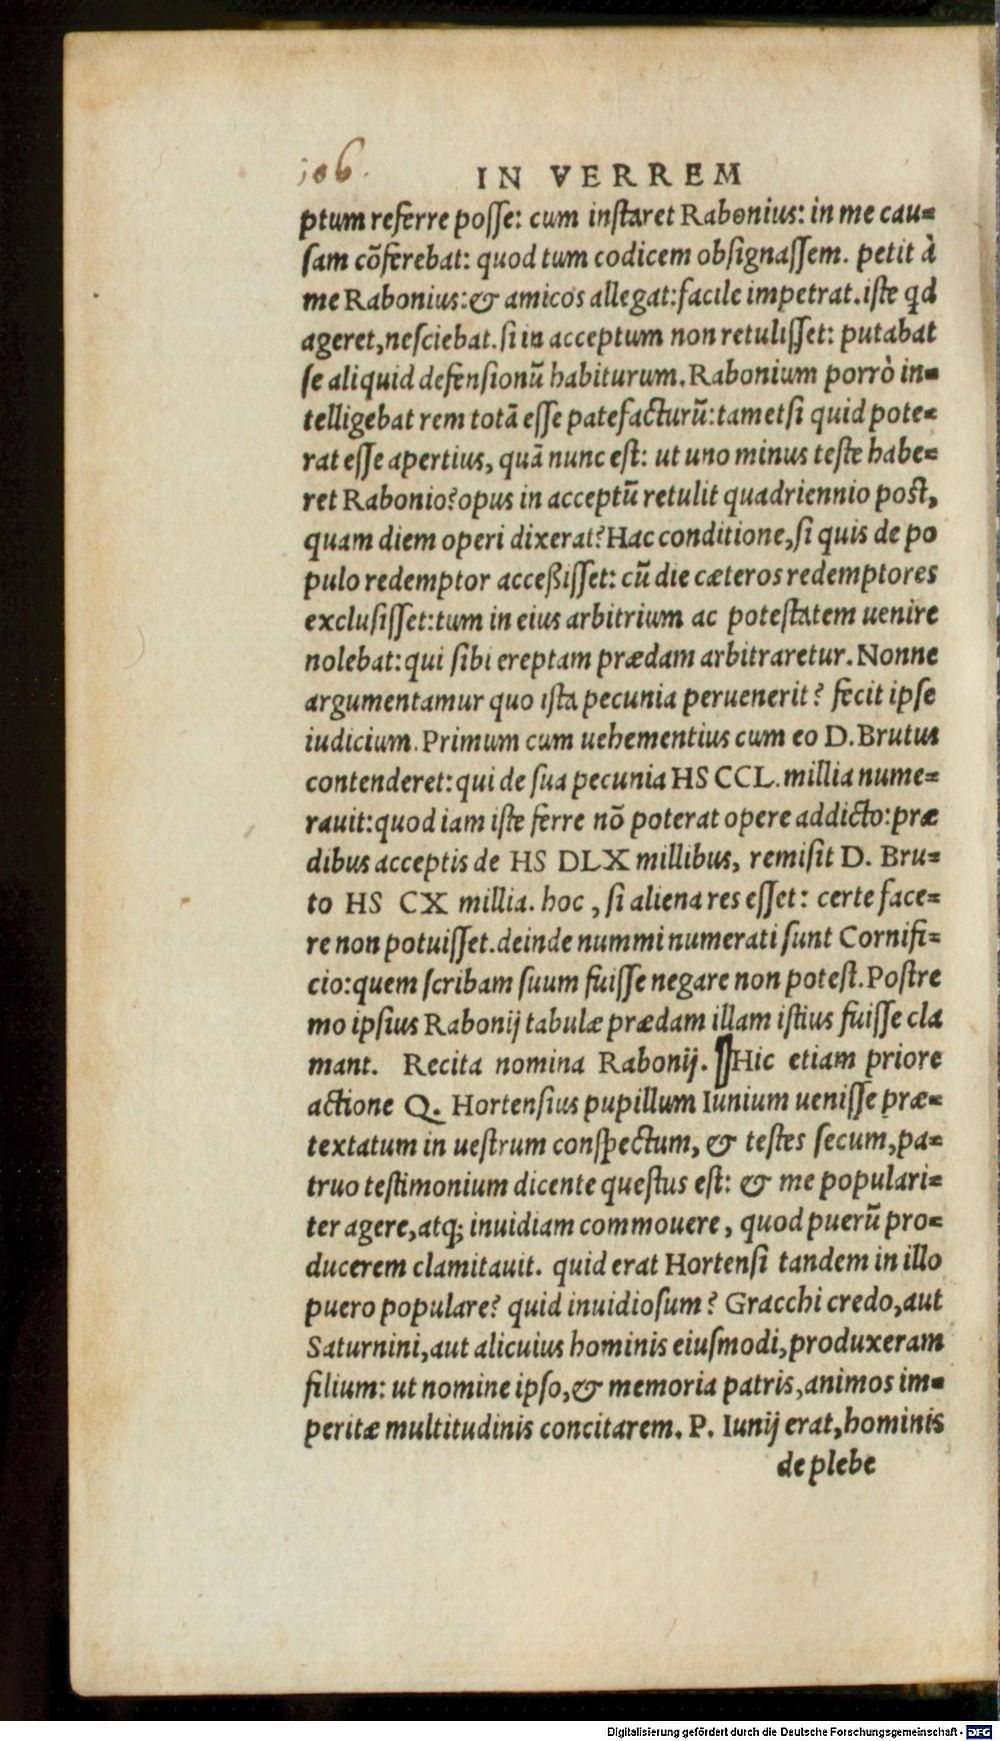 106.
IN VERREM
ptum referre posse: cum instaret Rabonius: in me cau=
sam cõferebat: quod tum codicem obsignassem. petit à
me Rabonius:& amicos allegat:facile impetrat.iste qd
ageret,nesciebat.si in acceptum non retulisset: putabat
se aliquid defensionũ habiturum.Rabonium porrò in=
telligebat rem totã esse patefacturũ:tametsi quid pote=
rat esse apertius, quã nunc est: ut uno minus teste habe=
ret Rabonio?opus in acceptũ retulit quadriennio post,
quam diem operi dixerat?Hac conditione,si quis de po
pulo redemptor accessisset: cũ die cæteros redemptores
exclusisset:tum in eius arbitrium ac potestatem uenire
nolebat:qui sibi ereptam prædam arbitraretur.Nonne
argumentamur quo ista pecunia peruenerit? fecit ipse
iudicium.Primum cum uehementius cum eo D.Brutus
contenderet:qui de sua pecunia HS CCL.millia nume=
rauit:quod iam iste ferre nõ poterat opere addicto:præ
dibus acceptis de HS DLX millibus, remisit D. Bru=
to HS CX millia. hoc, si aliena res esset: certe face=
re non potuisset.deinde nummi numerati sunt Cornifi=
cio:quem scribam suum fuisse negare non potest.Postre
mo ipsius Rabonij tabulæ prædam illam istius fuisse cla
mant. Recita nomina Rabonij. ]Hic etiam priore
actione Q. Hortensius pupillum Iunium uenisse præ=
textatum in uestrum conspectum, & testes secum,pa=
truo testimonium dicente questus est: & me populari=
ter agere,atq; inuidiam commouere, quod puerũ pro=
ducerem clamitauit. quid erat Hortensi tandem in illo
puero populare? quid inuidiosum? Gracchi credo,aut
Saturnini,aut alicuius hominis eiusmodi,produxeram
filium: ut nomine ipso,& memoria patris,animos im=
peritæ multitudinis concitarem. P. Iunij erat,hominis
de plebe
Digitalisierung gefördert durch die Deutsche Forschungsgemeinschaft - DFG